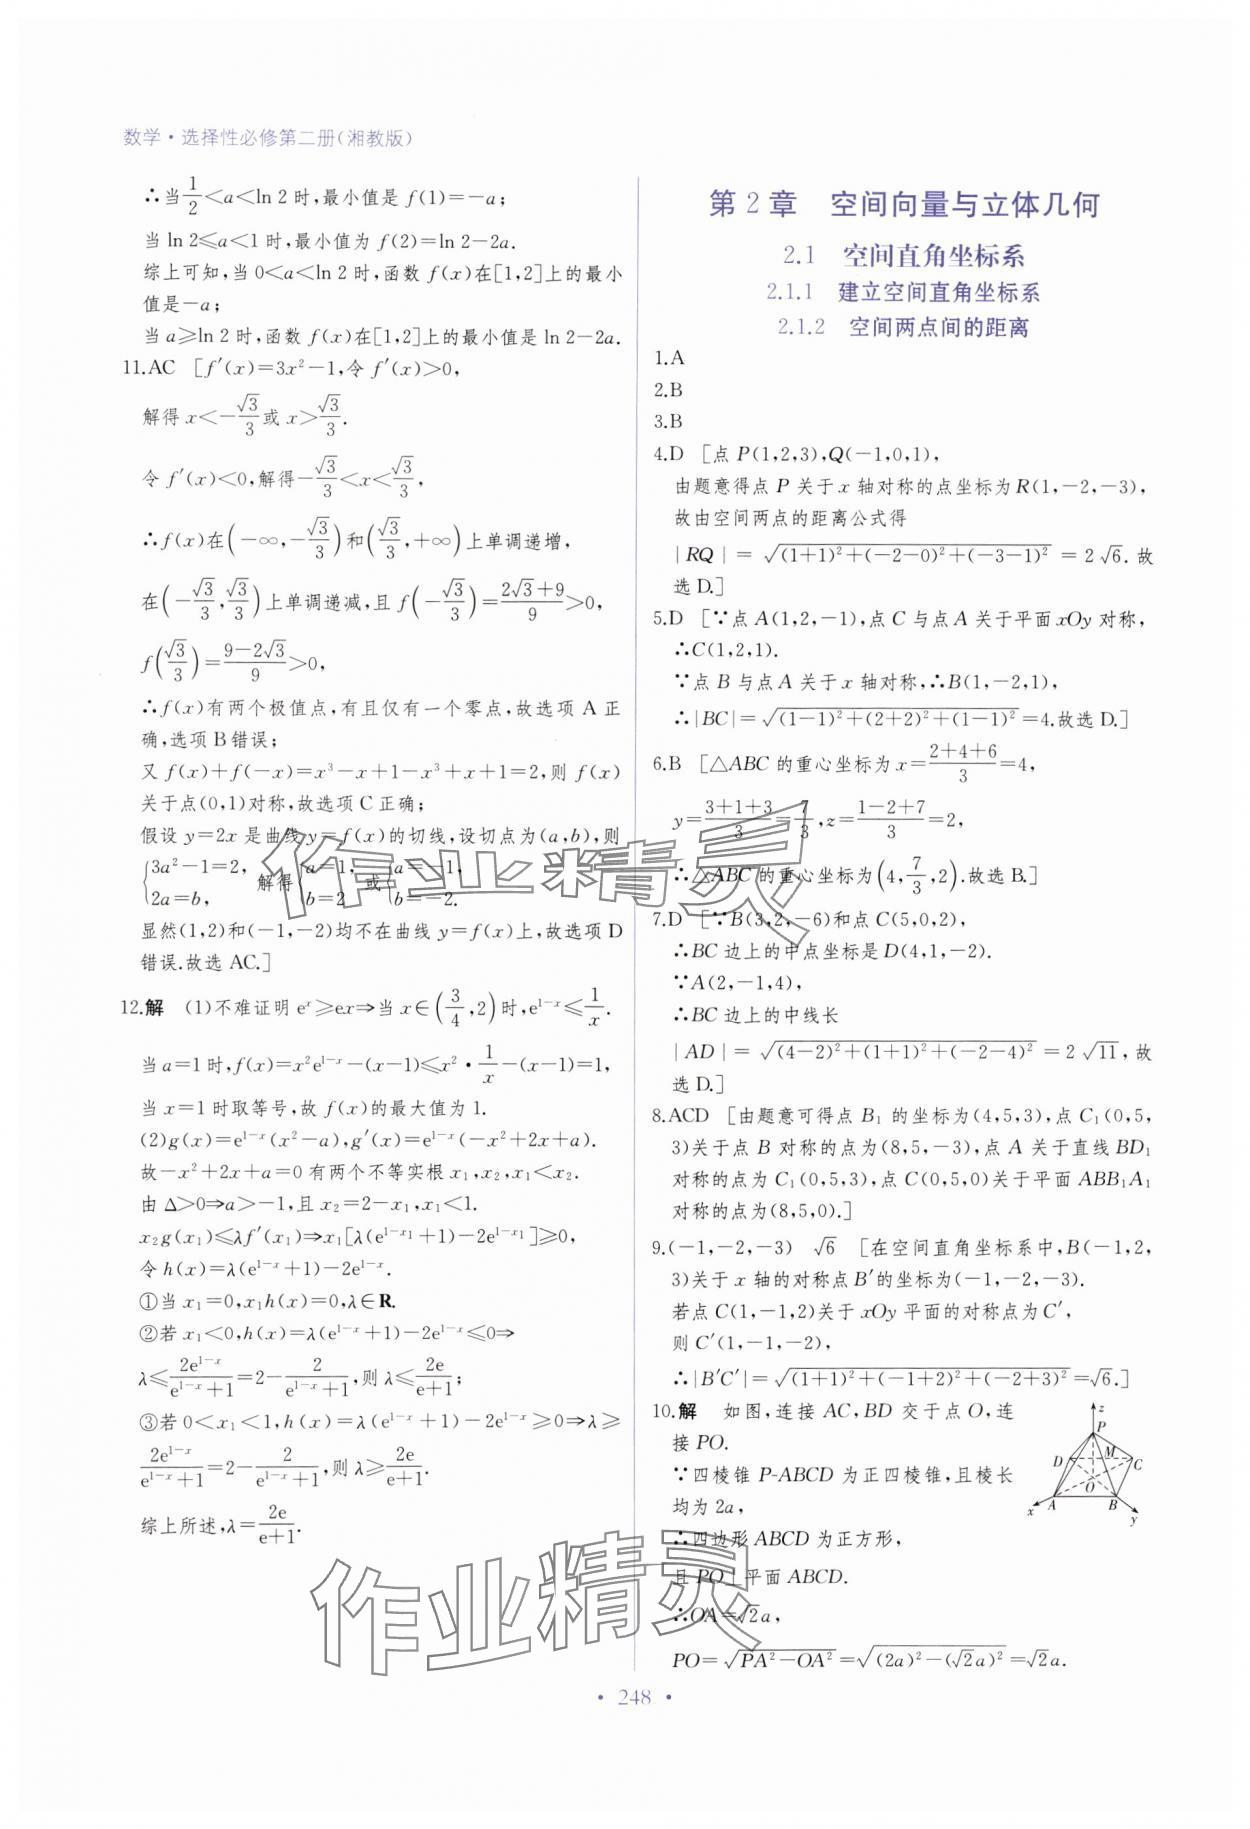 数学·选择性必修第二册(湘教版)
∴当1/2<a<ln 2时,最小值是 f(1)=-a;
当 ln 2≤a<1时,最小值为 f(2)=ln 2-2a.
综上可知,当 0<a<ln 2时,函数 f(x)在[1,2]上的最小
值是-a;
当 a≥ln 2时,函数 f(x)在[1,2]上的最小值是 ln 2-2a.
11.AC [f′(x)=3x²-1,令 f′(x)>0,
解得 x<-√3/3或 x>√3/3.
令 f′(x)<0,解得-√3/3<x<√3/3,
∴f(x)在(-∞,-√3/3)和(√3/3,+∞)上单调递增,
在(-√3/3,√3/3)上单调递减,且 f(-√3/3)=(2√3+9)/9>0,
f(√3/3)=(9-2√3)/9>0,
∴f(x)有两个极值点,有且仅有一个零点,故选项 A 正
确,选项 B 错误;
又 f(x)+f(-x)=x³-x+1-x³+x+1=2,则 f(x)
关于点(0,1)对称,故选项 C 正确;
假设 y=2x 是曲线 y=f(x)的切线,设切点为(a,b),则
{3a²-1=2, 2a=b, 解得{a=1, b=2 或{a=-1, b=-2.
显然(1,2)和(-1,-2)均不在曲线 y=f(x)上,故选项 D
错误.故选 AC.]
12.解 (1)不难证明 eˣ≥ex⇒当 x∈(3/4,2)时,e¹⁻ˣ≤1/x.
当 a=1时,f(x)=x²e¹⁻ˣ-(x-1)≤x²·1/x-(x-1)=1,
当 x=1时取等号,故 f(x)的最大值为 1.
(2)g(x)=e¹⁻ˣ(x²-a),g′(x)=e¹⁻ˣ(-x²+2x+a).
故-x²+2x+a=0有两个不等实根 x₁,x₂,x₁<x₂.
由 Δ>0⇒a>-1,且 x₂=2-x₁,x₁<1.
x₂g(x₁)≤λf′(x₁)⇒x₁[λ(e^(1-x₁)+1)-2e^(1-x₁)]≥0,
令 h(x)=λ(e¹⁻ˣ+1)-2e¹⁻ˣ.
①当 x₁=0,x₁h(x)=0,λ∈R.
②若 x₁<0,h(x)=λ(e¹⁻ˣ+1)-2e¹⁻ˣ≤0⇒
λ≤2e¹⁻ˣ/(e¹⁻ˣ+1)=2-2/(e¹⁻ˣ+1),则 λ≤2e/(e+1);
③若 0<x₁<1,h(x)=λ(e¹⁻ˣ+1)-2e¹⁻ˣ≥0⇒λ≥
2e¹⁻ˣ/(e¹⁻ˣ+1)=2-2/(e¹⁻ˣ+1),则 λ≥2e/(e+1).
综上所述,λ=2e/(e+1).
第 2 章 空间向量与立体几何
2.1 空间直角坐标系
2.1.1 建立空间直角坐标系
2.1.2 空间两点间的距离
1.A
2.B
3.B
4.D [点 P(1,2,3),Q(-1,0,1),
由题意得点 P 关于 x 轴对称的点坐标为 R(1,-2,-3),
故由空间两点的距离公式得
|RQ|=√((1+1)²+(-2-0)²+(-3-1)²)=2√6.故
选 D.]
5.D [∵点 A(1,2,-1),点 C 与点 A 关于平面 xOy 对称,
∴C(1,2,1).
∵点 B 与点 A 关于 x 轴对称,∴B(1,-2,1),
∴|BC|=√((1-1)²+(2+2)²+(1-1)²)=4.故选 D.]
6.B [△ABC 的重心坐标为 x=(2+4+6)/3=4,
y=(3+1+3)/3=7/3,z=(1-2+7)/3=2,
∴△ABC 的重心坐标为(4,7/3,2).故选 B.]
7.D [∵B(3,2,-6)和点 C(5,0,2),
∴BC 边上的中点坐标是 D(4,1,-2).
∵A(2,-1,4),
∴BC 边上的中线长
|AD|=√((4-2)²+(1+1)²+(-2-4)²)=2√11,故
选 D.]
8.ACD [由题意可得点 B₁ 的坐标为(4,5,3),点 C₁(0,5,
3)关于点 B 对称的点为(8,5,-3),点 A 关于直线 BD₁
对称的点为 C₁(0,5,3),点 C(0,5,0)关于平面 ABB₁A₁
对称的点为(8,5,0).]
9.(-1,-2,-3) √6 [在空间直角坐标系中,B(-1,2,
3)关于 x 轴的对称点 B′的坐标为(-1,-2,-3).
若点 C(1,-1,2)关于 xOy 平面的对称点为 C′,
则 C′(1,-1,-2),
∴|B′C′|=√((1+1)²+(-1+2)²+(-2+3)²)=√6.]
10.解 如图,连接 AC,BD 交于点 O,连
接 PO.
∵四棱锥 P-ABCD 为正四棱锥,且棱长
均为 2a,
∴四边形 ABCD 为正方形,
且 PO⊥平面 ABCD.
∴OA=√2a,
PO=√(PA²-OA²)=√((2a)²-(√2a)²)=√2a.
z
P
D
M
C
O
x
A
B
y
作业精灵
作业精灵
· 248 ·